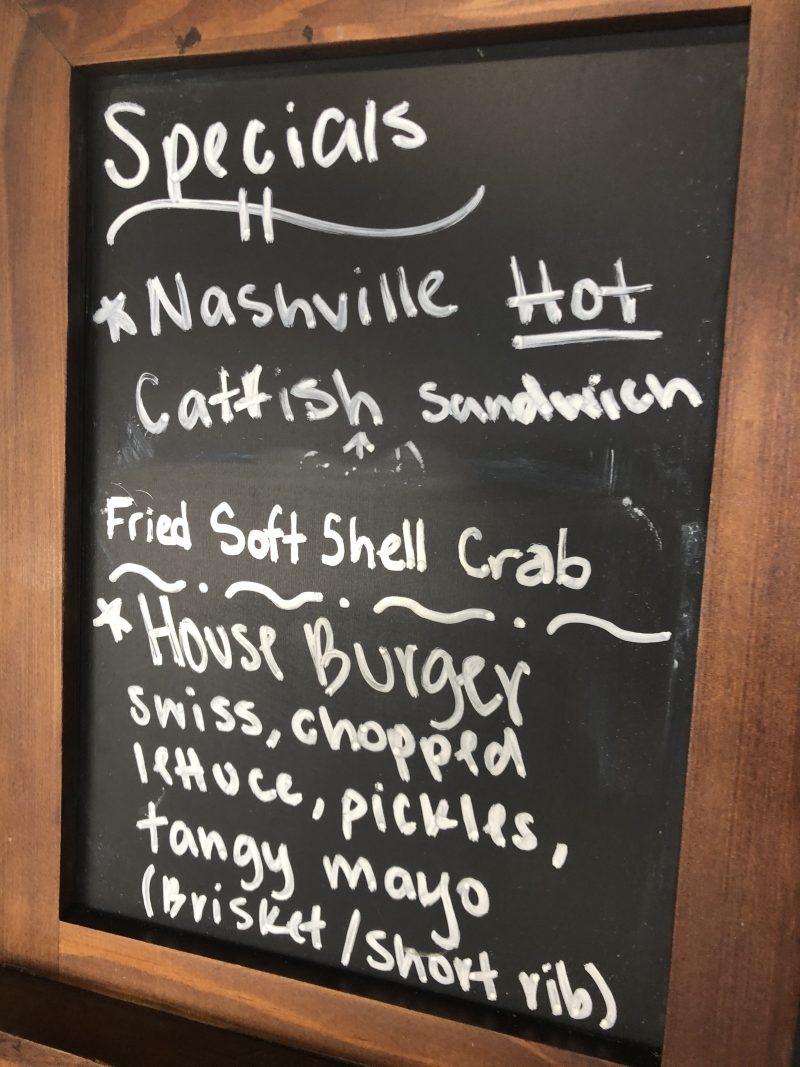 Specials
*Nashville Hot
Catfish sandwich
Fried Soft Shell Crab
*House Burger
swiss, chopped
lettuce, pickles,
tangy mayo
(Brisket/short rib)